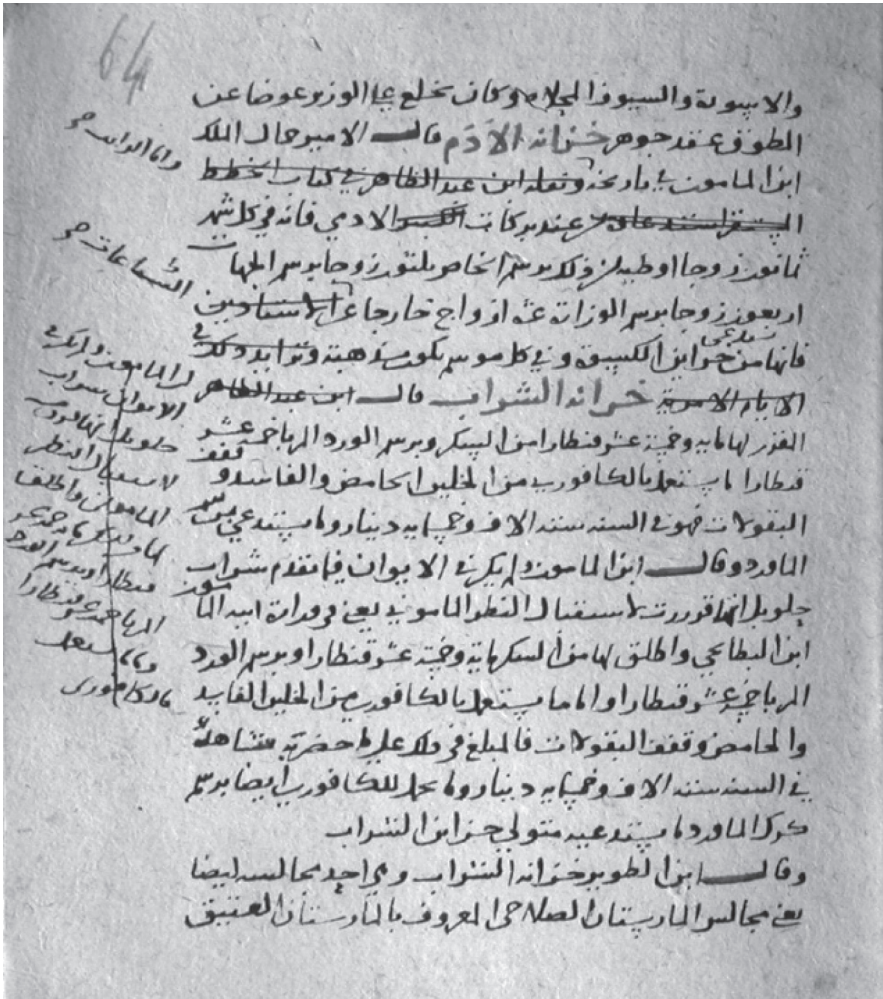 64
والاسورة والسيوف المحلاة وكان يخلع على الوزير عوضا عن
الطوق عقد جوهر خزانة الأدم قال الامير جمال الملك
ابن المامون في تاريخه ونقله ابن عبد الظاهر في كتاب الخطط
عند بركات الادمي فانه في كل شهر
ثمانون زوجا اوطية من ذلك برسم الخاص ثلثون زوجا برسم الجهات
اربعون زوجا برسم الوزارة عشرة ازواج خارجا عن
فانها تستدعى من خزاين الكسوة وفي كل موسم تكون مذهبة
خزانة الشراب قال ابن عبد الظاهر
عشر قنطارا من السكر وبرسم الورد المربا خمسة عشر
قنطارا ما يستعمل بالكافوري من الخلين الحامض والفاسد وقفف
البقولات فهو في السنة ستة الاف وخمسماية دينار وما يستدعى برسم
الماورد وقال ابن المامون ولم يكن في الايوان فيما تقدم شراب
حلو بل انها قررت لاستقبال النظر الماموني يعني في وزارة ابيه المامون
ابن البطايحي واطلق لها من السكر ماية وخمسة عشر قنطارا وبرسم الورد
المربا خمسة عشر قنطارا واما ما يستعمل بالكافوري من الخلين الفايد
والحامض وقفف البقولات فالمبلغ في ذلك على ما حضر به شاهده
في السنة ستة الاف وخمسماية دينار وما يحمل للكافوري ايضا برسم
كرك الماورد ما يستدعيه متولي خزاين الشراب
وقال ابن الطوير خزانة الشراب وهي احد مجالسه ايضا
يعني مجالس المارستان الصلاحي المعروف بالمارستان العتيق
واما الراتب
الساعات
المامون ولم يكن في
الايوان شراب
حلو بل انها قررت
لاستقبال النظر
الماموني واطلق
قنطارا وبرسم الورد
المربا خمسة عشر قنطارا
واما ما يستعمل
بالكافوري